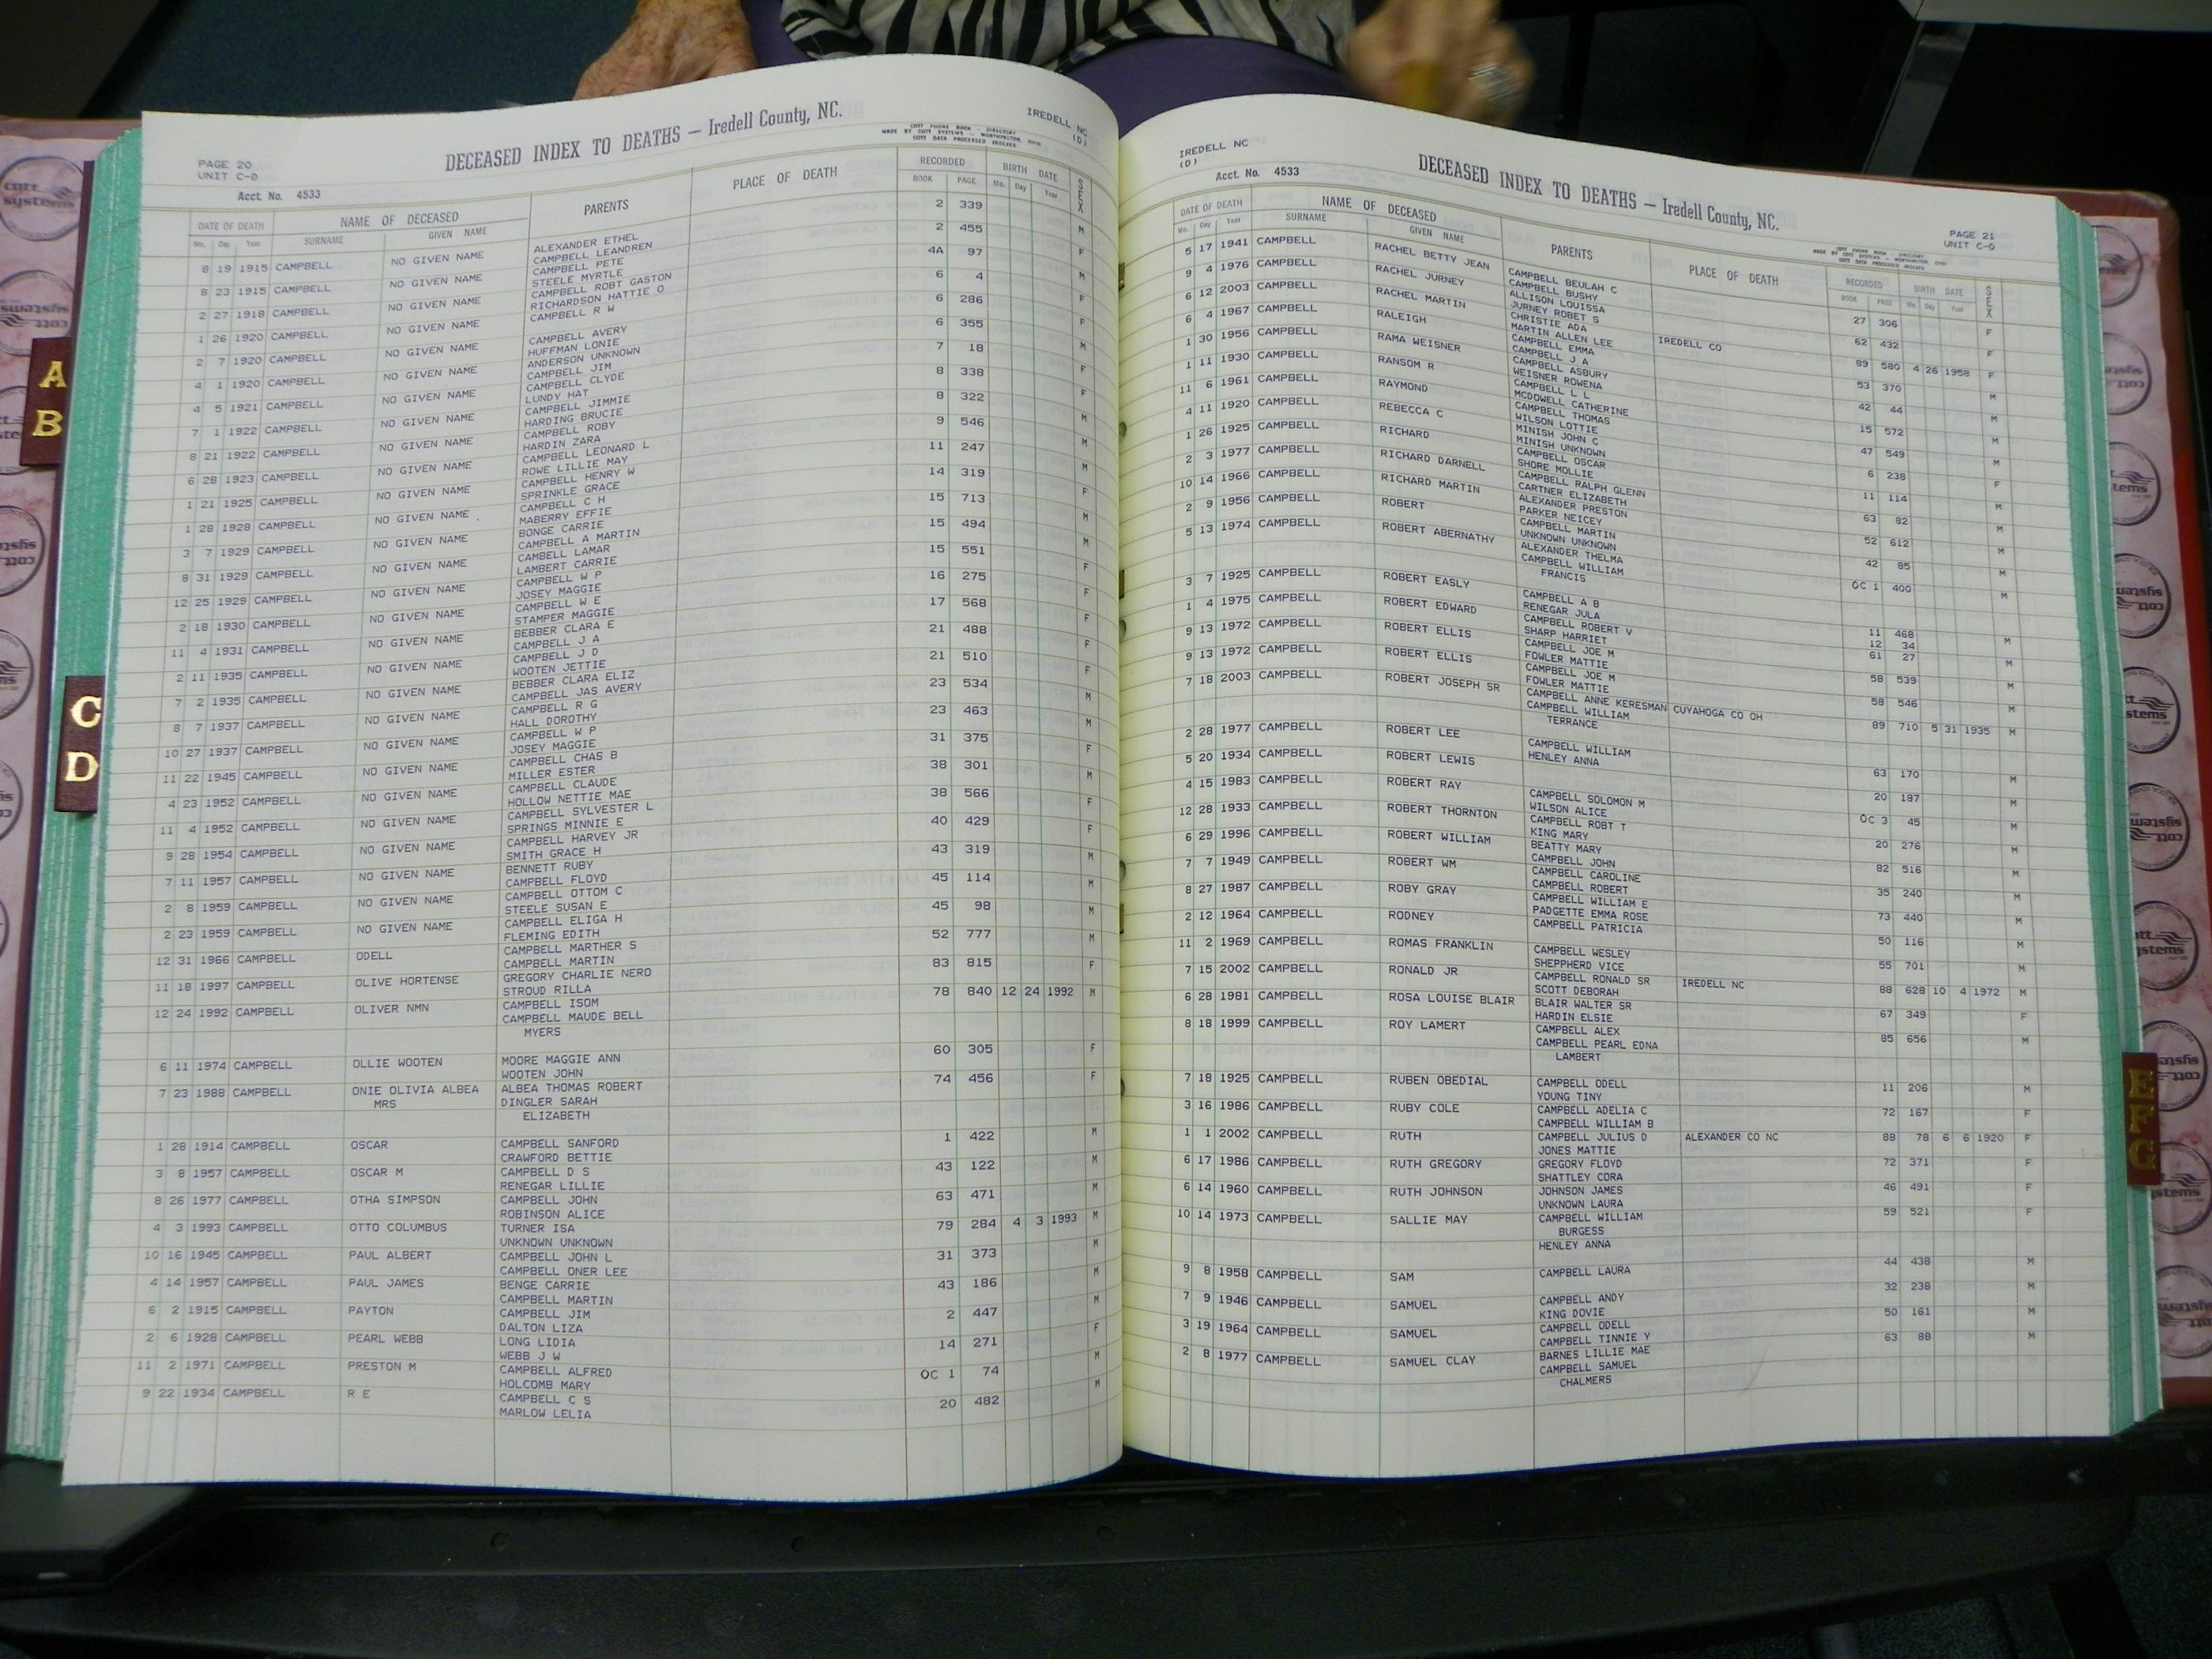 PAGE 20
UNIT C-D
DECEASED INDEX TO DEATHS — Iredell County, NC.
COTT PHONE BOOK - DIRECTORY
MADE BY COTT SYSTEMS - WORTHINGTON, OHIO
COTT DATA PROCESSED INDEXES
IREDELL NC
(D)
Acct. No. 4533
DATE OF DEATH NAME OF DECEASED PARENTS PLACE OF DEATH RECORDED BIRTH DATE SEX
Mo. Day Year SURNAME GIVEN NAME BOOK PAGE Mo. Day Year
8 19 1915 CAMPBELL NO GIVEN NAME ALEXANDER ETHEL 2 339 M
CAMPBELL LEANDREN
8 23 1915 CAMPBELL NO GIVEN NAME CAMPBELL PETE 2 455 F
STEELE MYRTLE
2 27 1918 CAMPBELL NO GIVEN NAME CAMPBELL ROBT GASTON 4A 97 M
RICHARDSON HATTIE O
1 26 1920 CAMPBELL NO GIVEN NAME CAMPBELL R W 6 4 F
2 7 1920 CAMPBELL NO GIVEN NAME CAMPBELL AVERY 6 286 F
HUFFMAN LONIE
4 1 1920 CAMPBELL NO GIVEN NAME ANDERSON UNKNOWN 6 355 M
CAMPBELL JIM
4 5 1921 CAMPBELL NO GIVEN NAME CAMPBELL CLYDE 7 18 F
LUNDY HAT
7 1 1922 CAMPBELL NO GIVEN NAME CAMPBELL JIMMIE 8 338 F
HARDING BRUCIE
8 21 1922 CAMPBELL NO GIVEN NAME CAMPBELL ROBY 8 322 M
HARDIN ZARA
6 28 1923 CAMPBELL NO GIVEN NAME CAMPBELL LEONARD L 9 546 M
ROWE LILLIE MAY
1 21 1925 CAMPBELL NO GIVEN NAME CAMPBELL HENRY W 11 247 F
SPRINKLE GRACE
1 28 1928 CAMPBELL NO GIVEN NAME CAMPBELL C H 14 319 M
MABERRY EFFIE
3 7 1929 CAMPBELL NO GIVEN NAME BONGE CARRIE 15 713 M
CAMPBELL A MARTIN
8 31 1929 CAMPBELL NO GIVEN NAME CAMBELL LAMAR 15 494 F
LAMBERT CARRIE
12 25 1929 CAMPBELL NO GIVEN NAME CAMPBELL W P 15 551 F
JOSEY MAGGIE
2 18 1930 CAMPBELL NO GIVEN NAME CAMPBELL W E 16 275 F
STAMPER MAGGIE
11 4 1931 CAMPBELL NO GIVEN NAME BEBBER CLARA E 17 568 F
CAMPBELL J A
2 11 1935 CAMPBELL NO GIVEN NAME CAMPBELL J D 21 488 F
WOOTEN JETTIE
7 2 1935 CAMPBELL NO GIVEN NAME BEBBER CLARA ELIZ 21 510 M
CAMPBELL JAS AVERY
8 7 1937 CAMPBELL NO GIVEN NAME CAMPBELL R G 23 534 M
HALL DOROTHY
10 27 1937 CAMPBELL NO GIVEN NAME CAMPBELL W P 23 463 F
JOSEY MAGGIE
11 22 1945 CAMPBELL NO GIVEN NAME CAMPBELL CHAS B 31 375 M
MILLER ESTER
4 23 1952 CAMPBELL NO GIVEN NAME CAMPBELL CLAUDE 38 301 F
HOLLOW NETTIE MAE
11 4 1952 CAMPBELL NO GIVEN NAME CAMPBELL SYLVESTER L 38 566 F
SPRINGS MINNIE E
9 28 1954 CAMPBELL NO GIVEN NAME CAMPBELL HARVEY JR 40 429 M
SMITH GRACE H
7 11 1957 CAMPBELL NO GIVEN NAME BENNETT RUBY 43 319 M
CAMPBELL FLOYD
2 8 1959 CAMPBELL NO GIVEN NAME CAMPBELL OTTOM C 45 114 M
STEELE SUSAN E
2 23 1959 CAMPBELL NO GIVEN NAME CAMPBELL ELIGA H 45 98 M
FLEMING EDITH
12 31 1966 CAMPBELL ODELL CAMPBELL MARTHER S 52 777 M
CAMPBELL MARTIN
11 18 1997 CAMPBELL OLIVE HORTENSE GREGORY CHARLIE NERO 83 815 F
STROUD RILLA
12 24 1992 CAMPBELL OLIVER NMN CAMPBELL ISOM 78 840 12 24 1992 M
CAMPBELL MAUDE BELL
MYERS
6 11 1974 CAMPBELL OLLIE WOOTEN MOORE MAGGIE ANN 60 305 F
WOOTEN JOHN
7 23 1988 CAMPBELL ONIE OLIVIA ALBEA ALBEA THOMAS ROBERT 74 456 F
MRS DINGLER SARAH
ELIZABETH
1 28 1914 CAMPBELL OSCAR CAMPBELL SANFORD 1 422 M
CRAWFORD BETTIE
3 8 1957 CAMPBELL OSCAR M CAMPBELL D S 43 122 M
RENEGAR LILLIE
8 26 1977 CAMPBELL OTHA SIMPSON CAMPBELL JOHN 63 471 M
ROBINSON ALICE
4 3 1993 CAMPBELL OTTO COLUMBUS TURNER ISA 79 284 4 3 1993 M
UNKNOWN UNKNOWN
10 16 1945 CAMPBELL PAUL ALBERT CAMPBELL JOHN L 31 373 M
CAMPBELL ONER LEE
4 14 1957 CAMPBELL PAUL JAMES BENGE CARRIE 43 186 M
CAMPBELL MARTIN
6 2 1915 CAMPBELL PAYTON CAMPBELL JIM 2 447 M
DALTON LIZA
2 6 1928 CAMPBELL PEARL WEBB LONG LIDIA 14 271 F
WEBB J W
11 2 1971 CAMPBELL PRESTON M CAMPBELL ALFRED OC 1 74 M
HOLCOMB MARY
9 22 1934 CAMPBELL R E CAMPBELL C S 20 482 M
MARLOW LELIA
IREDELL NC
(D)
DECEASED INDEX TO DEATHS — Iredell County, NC.
PAGE 21
UNIT C-D
COTT PHONE BOOK - DIRECTORY
MADE BY COTT SYSTEMS - WORTHINGTON, OHIO
COTT DATA PROCESSED INDEXES
Acct. No. 4533
DATE OF DEATH NAME OF DECEASED PARENTS PLACE OF DEATH RECORDED BIRTH DATE SEX
Mo. Day Year SURNAME GIVEN NAME BOOK PAGE Mo. Day Year
5 17 1941 CAMPBELL RACHEL BETTY JEAN CAMPBELL BEULAH C 27 306 F
CAMPBELL BUSHY
9 4 1976 CAMPBELL RACHEL JURNEY ALLISON LOUISSA 62 432 F
JURNEY ROBET S
6 12 2003 CAMPBELL RACHEL MARTIN CHRISTIE ADA IREDELL CO 89 580 4 26 1958 F
MARTIN ALLEN LEE
6 4 1967 CAMPBELL RALEIGH CAMPBELL EMMA 53 370 M
CAMPBELL J A
1 30 1956 CAMPBELL RAMA WEISNER CAMPBELL ASBURY 42 44 M
WEISNER ROWENA
1 11 1930 CAMPBELL RANSOM R CAMPBELL L L 15 572 M
MCDOWELL CATHERINE
11 6 1961 CAMPBELL RAYMOND CAMPBELL THOMAS 47 549 M
WILSON LOTTIE
4 11 1920 CAMPBELL REBECCA C MINISH JOHN C 6 238 F
MINISH UNKNOWN
1 26 1925 CAMPBELL RICHARD CAMPBELL OSCAR 11 114 M
SHORE MOLLIE
2 3 1977 CAMPBELL RICHARD DARNELL CAMPBELL RALPH GLENN 63 82 M
CARTNER ELIZABETH
10 14 1966 CAMPBELL RICHARD MARTIN ALEXANDER PRESTON 52 612 M
PARKER NEICEY
2 9 1956 CAMPBELL ROBERT CAMPBELL MARTIN 42 85 M
UNKNOWN UNKNOWN
5 13 1974 CAMPBELL ROBERT ABERNATHY ALEXANDER THELMA OC 1 400 M
CAMPBELL WILLIAM
FRANCIS
3 7 1925 CAMPBELL ROBERT EASLY CAMPBELL A B 11 468 M
RENEGAR JULA 12 34
1 4 1975 CAMPBELL ROBERT EDWARD CAMPBELL ROBERT V 61 27 M
SHARP HARRIET
9 13 1972 CAMPBELL ROBERT ELLIS CAMPBELL JOE M 58 539 M
FOWLER MATTIE
9 13 1972 CAMPBELL ROBERT ELLIS CAMPBELL JOE M 58 546
FOWLER MATTIE
7 18 2003 CAMPBELL ROBERT JOSEPH SR CAMPBELL ANNE KERESMAN CUYAHOGA CO OH 89 710 5 31 1935 M
CAMPBELL WILLIAM
TERRANCE
2 28 1977 CAMPBELL ROBERT LEE CAMPBELL WILLIAM 63 170 M
HENLEY ANNA
5 20 1934 CAMPBELL ROBERT LEWIS 20 187 M
4 15 1983 CAMPBELL ROBERT RAY CAMPBELL SOLOMON M OC 3 45 M
WILSON ALICE
12 28 1933 CAMPBELL ROBERT THORNTON CAMPBELL ROBT T 20 276 M
KING MARY
6 29 1996 CAMPBELL ROBERT WILLIAM BEATTY MARY 82 516 M
CAMPBELL JOHN
7 7 1949 CAMPBELL ROBERT WM CAMPBELL CAROLINE 35 240 M
CAMPBELL ROBERT
8 27 1987 CAMPBELL ROBY GRAY CAMPBELL WILLIAM E 73 440 M
PADGETTE EMMA ROSE
2 12 1964 CAMPBELL RODNEY CAMPBELL PATRICIA 50 116 M
11 2 1969 CAMPBELL ROMAS FRANKLIN CAMPBELL WESLEY 55 701 M
SHEPPHERD VICE
7 15 2002 CAMPBELL RONALD JR CAMPBELL RONALD SR IREDELL NC 88 628 10 4 1972 M
SCOTT DEBORAH
6 28 1981 CAMPBELL ROSA LOUISE BLAIR BLAIR WALTER SR 67 349 F
HARDIN ELSIE
8 18 1999 CAMPBELL ROY LAMERT CAMPBELL ALEX 85 656 M
CAMPBELL PEARL EDNA
LAMBERT
7 18 1925 CAMPBELL RUBEN OBEDIAL CAMPBELL ODELL 11 206 M
YOUNG TINY
3 16 1986 CAMPBELL RUBY COLE CAMPBELL ADELIA C 72 167 F
CAMPBELL WILLIAM B
1 1 2002 CAMPBELL RUTH CAMPBELL JULIUS D ALEXANDER CO NC 88 78 6 6 1920 F
JONES MATTIE
6 17 1986 CAMPBELL RUTH GREGORY GREGORY FLOYD 72 371 F
SHATTLEY CORA
6 14 1960 CAMPBELL RUTH JOHNSON JOHNSON JAMES 46 491 F
UNKNOWN LAURA
10 14 1973 CAMPBELL SALLIE MAY CAMPBELL WILLIAM 59 521 F
BURGESS
HENLEY ANNA
9 8 1958 CAMPBELL SAM CAMPBELL LAURA 44 438 M
7 9 1946 CAMPBELL SAMUEL CAMPBELL ANDY 32 238 M
KING DOVIE
3 19 1964 CAMPBELL SAMUEL CAMPBELL ODELL 50 161 M
CAMPBELL TINNIE Y
2 8 1977 CAMPBELL SAMUEL CLAY BARNES LILLIE MAE 63 88 M
CAMPBELL SAMUEL
CHALMERS
A
B
C
D
E
F
G
cott
systems